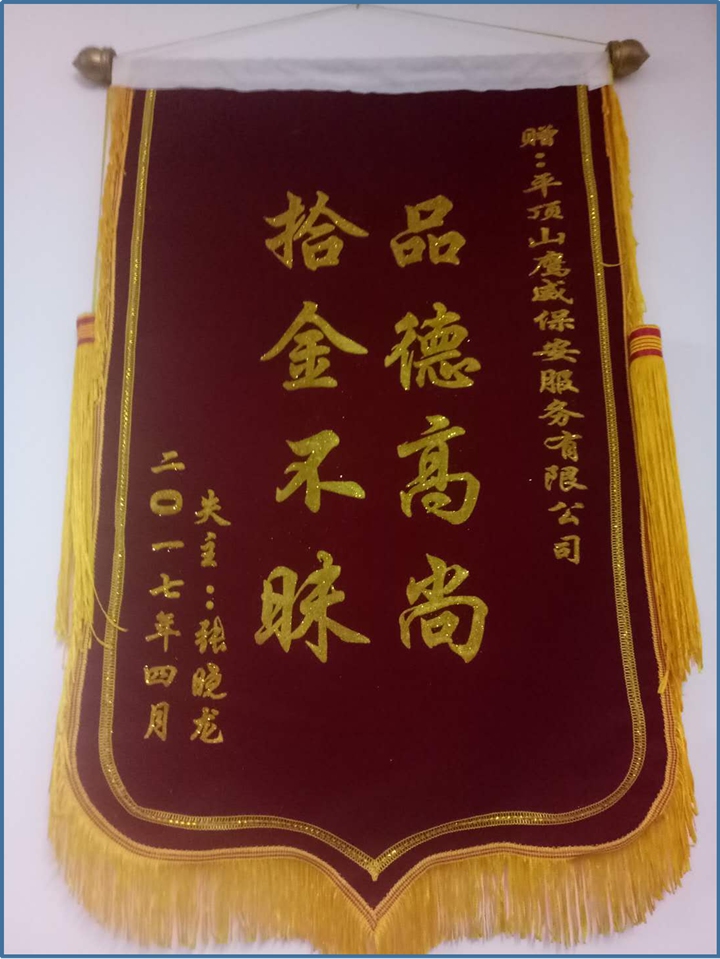 赠：平顶山鹰威保安服务有限公司
品德高尚
拾金不昧
失主：张晓龙
二〇一七年四月